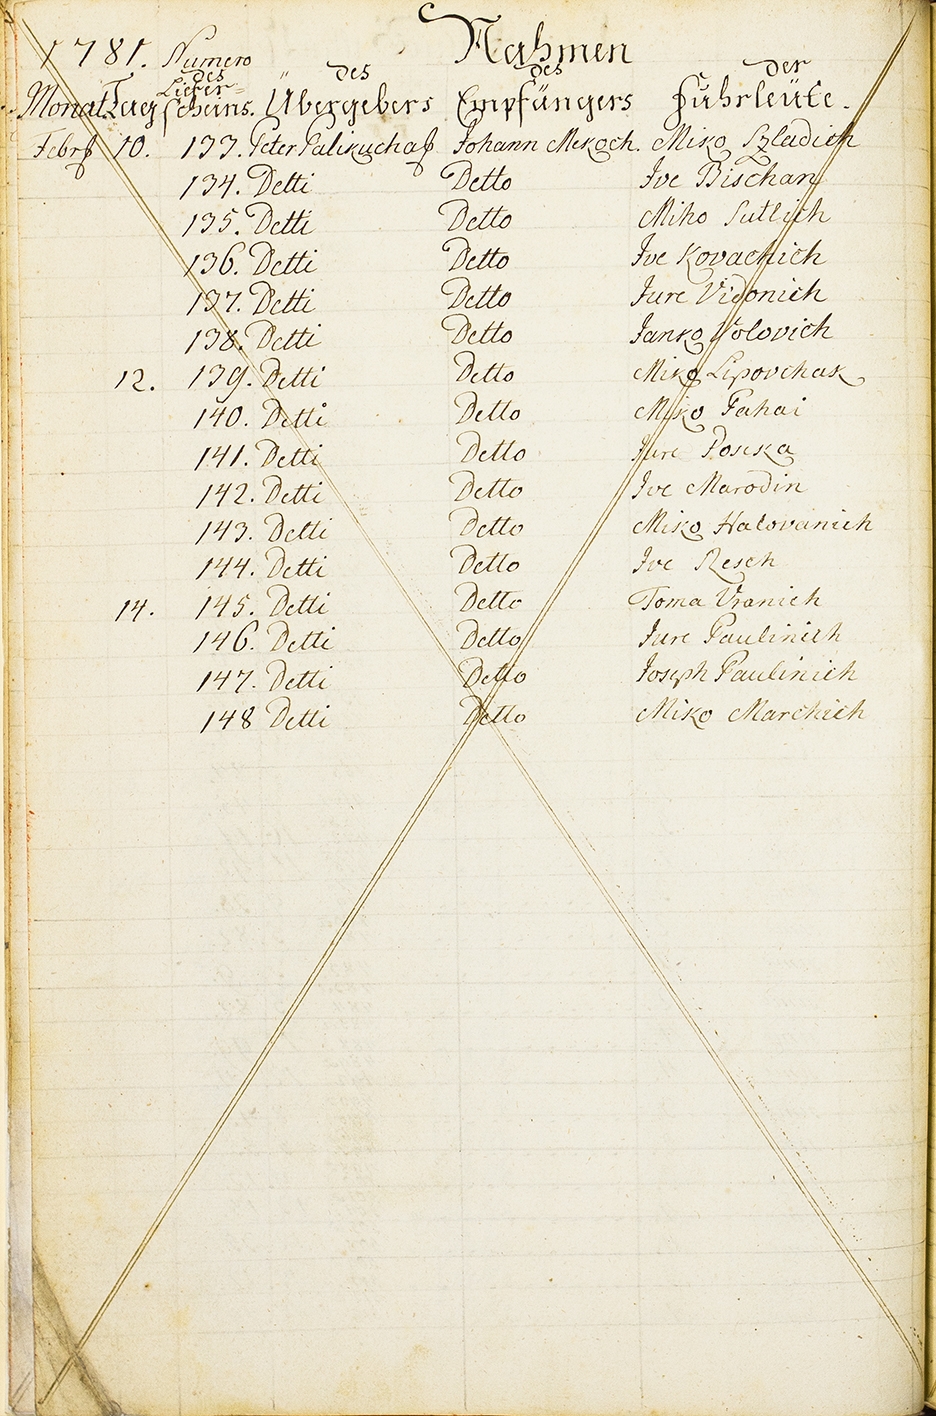 1781. Numero Nahmen
des des des der
Liefer-
Monat Tag scheins. Übergebers Empfängers Fuhrleüte.
Febr 10. 133. Peter Johann Mekoch. Miko Szladich
134. Detti Detto Ive Bischan
135. Detti Detto Miho Sutlich
136. Detti Detto Ive Kovachich
137. Detti Detto Jure Vidonich
138. Detti Detto Janko Volovich
12. 139. Detti Detto Miko Lipovchak
140. Detti Detto Miko Fahai
141. Detti Detto Jure
142. Detti Detto Ive Marodin
143. Detti Detto Miko Halovanich
144. Detti Detto Ive Resch
14. 145. Detti Detto Toma Vranich
146. Detti Detto Jure Paulinich
147. Detti Detto Joseph Paulinich
148 Detti Detto Miko Marchich